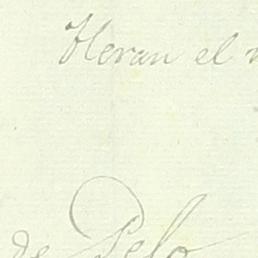 Heran el
de Pelo